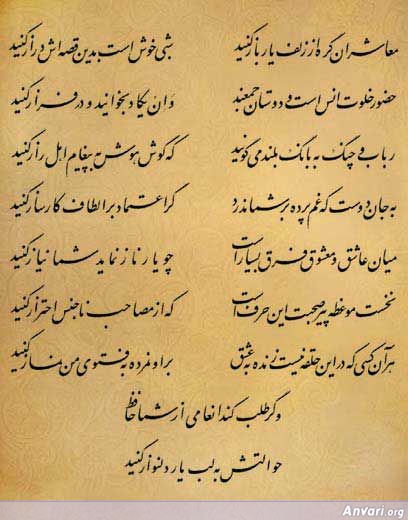 معاشران گره از زلف یار باز کنید شبی خوش است بدین قصه‌اش دراز کنید
حضور خلوت انس است و دوستان جمعند وان یکاد بخوانید و در فراز کنید
رباب و چنگ به بانگ بلند می‌گویند که گوش هوش به پیغام اهل راز کنید
به جان دوست که غم پرده بر شما ندرد گر اعتماد بر الطاف کارساز کنید
میان عاشق و معشوق فرق بسیار است چو یار ناز نماید شما نیاز کنید
نخست موعظه پیر صحبت این حرف است که از مصاحب ناجنس احتراز کنید
هر آن کسی که در این حلقه نیست زنده به عشق بر او نمرده به فتوی من نماز کنید
وگر طلب کند انعامی از شما حافظ
حوالتش به لب یار دلنواز کنید
Anvari.org